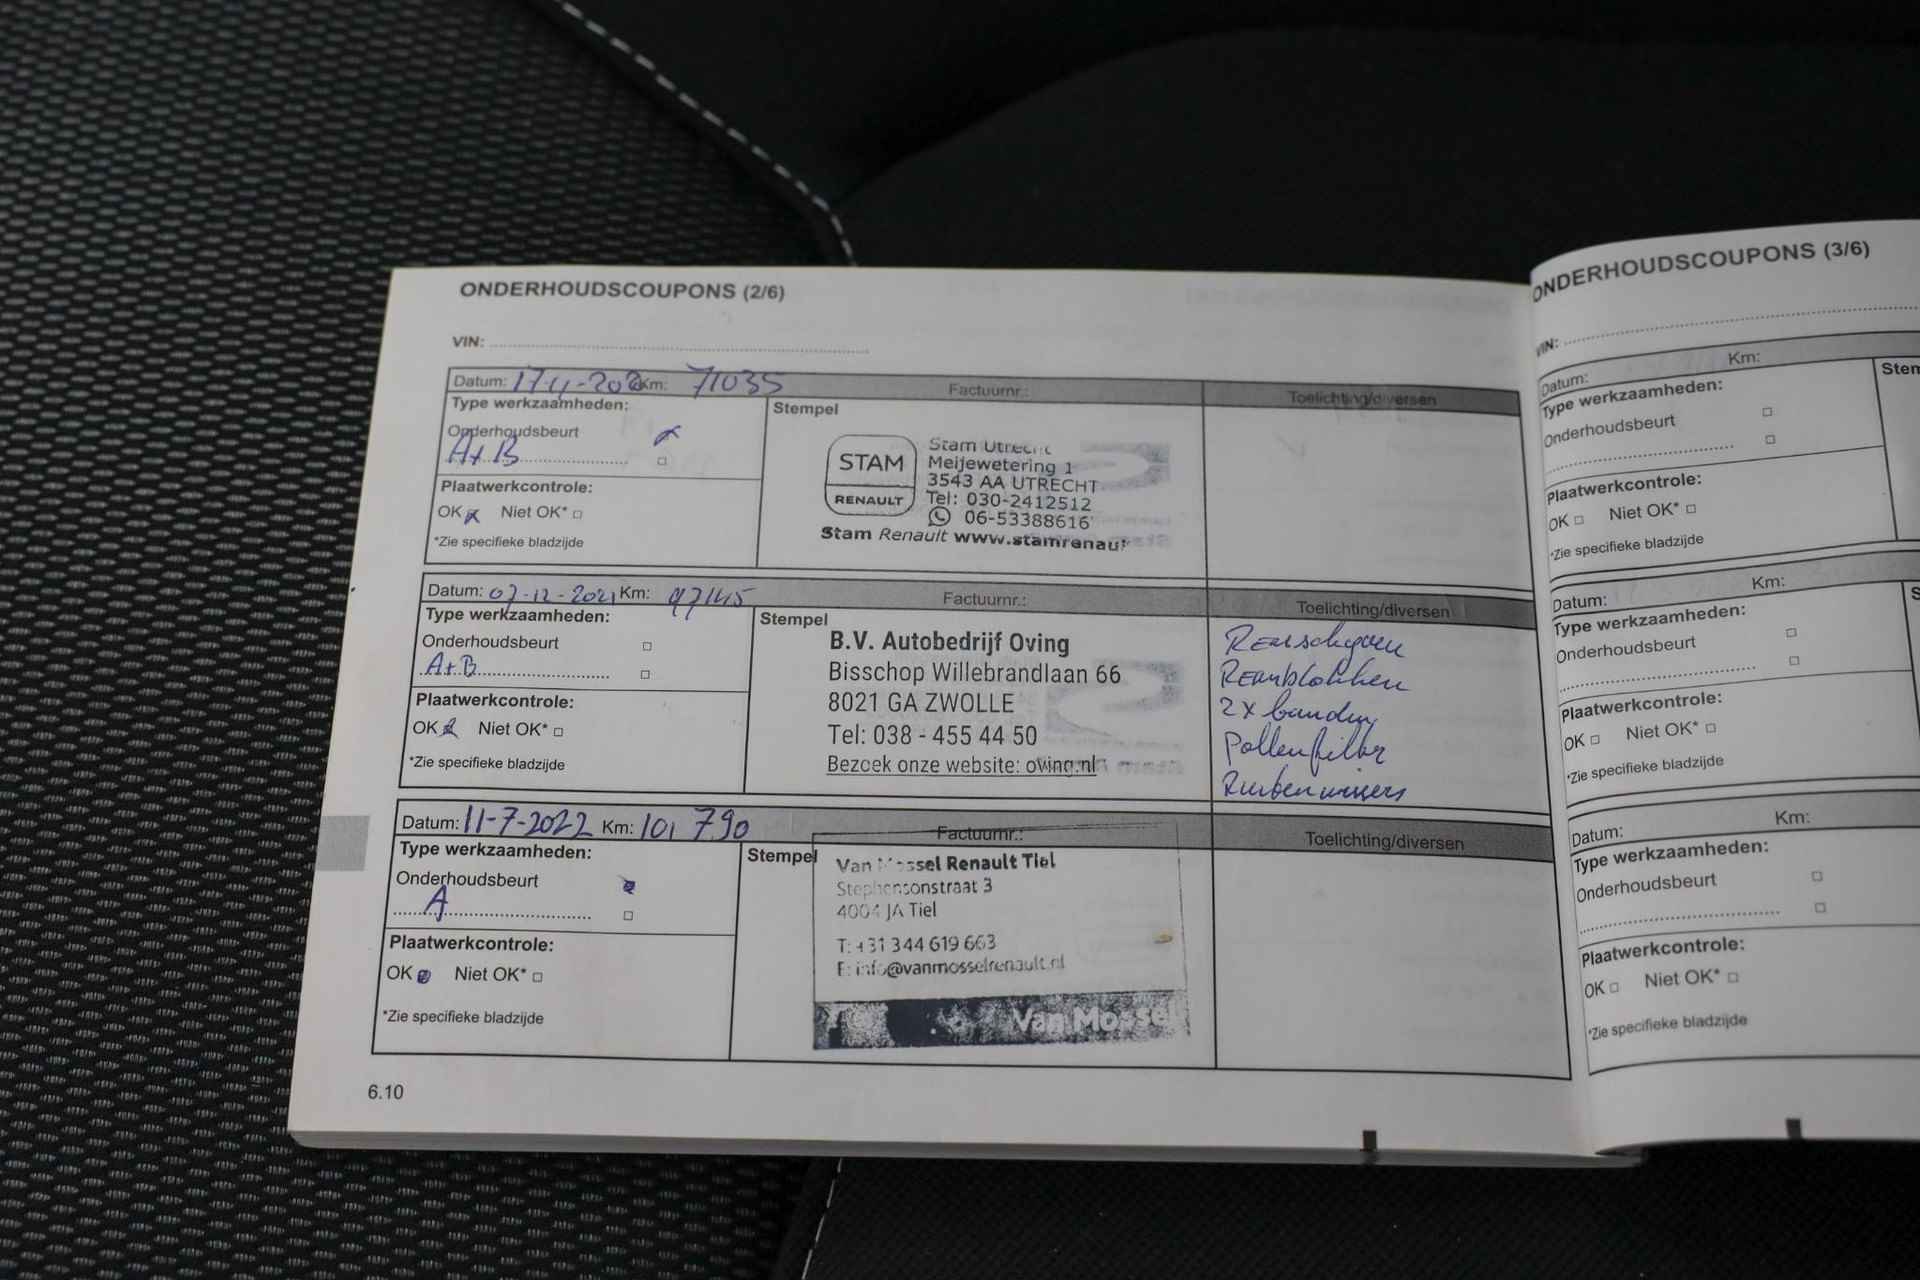 ONDERHOUDSCOUPONS (2/6)
VIN:
Datum: Km: 71035 Factuurnr.: Toelichting/diversen
Type werkzaamheden:
Onderhoudsbeurt
A+B
Plaatwerkcontrole:
OK Niet OK*
*Zie specifieke bladzijde
Stempel
STAM
RENAULT
Stam Utrecht
Meijewetering 1
3543 AA UTRECHT
Tel: 030-2412512
06-53388616
Stam Renault www.stamrenaul
Datum: 07-12-2021 Km: 97145 Factuurnr.: Toelichting/diversen
Type werkzaamheden:
Onderhoudsbeurt
A+B
Plaatwerkcontrole:
OK Niet OK*
*Zie specifieke bladzijde
Stempel
B.V. Autobedrijf Oving
Bisschop Willebrandlaan 66
8021 GA ZWOLLE
Tel: 038 - 455 44 50
Bezoek onze website: oving.nl
Remschyven
Remblokken
2x banden
Pollenfilter
Ruitenwissers
Datum: 11-7-2022 Km: 101 790 Factuurnr.: Toelichting/diversen
Type werkzaamheden:
Onderhoudsbeurt
A
Plaatwerkcontrole:
OK Niet OK*
*Zie specifieke bladzijde
Stempel
Van Mossel Renault Tiel
Stephensonstraat 3
4004 JA Tiel
T: +31 344 619 663
E: info@vanmosselrenault.nl
Van Mossel
6.10
ONDERHOUDSCOUPONS (3/6)
VIN:
Datum: Km:
Type werkzaamheden:
Onderhoudsbeurt
Plaatwerkcontrole:
OK Niet OK*
*Zie specifieke bladzijde
Stem
Datum: Km:
Type werkzaamheden:
Onderhoudsbeurt
Plaatwerkcontrole:
OK Niet OK*
*Zie specifieke bladzijde
S
Datum: Km:
Type werkzaamheden:
Onderhoudsbeurt
Plaatwerkcontrole:
OK Niet OK*
*Zie specifieke bladzijde